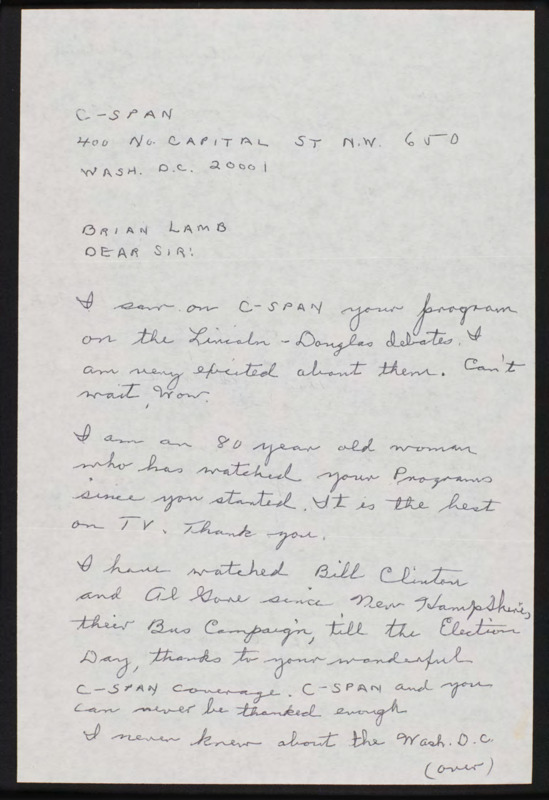 C-SPAN
400 No. CAPITAL ST N.W. 650
WASH. D.C. 20001
BRIAN LAMB
DEAR SIR:
I saw on C-SPAN your program
on the Lincoln-Douglas debates. I
am very excited about them. Can't
wait, Wow.
I am an 80 year old woman
who has watched your Programs
since you started. It is the best
on TV. Thank you.
I have watched Bill Clinton
and Al Gore since New Hampshire,
their Bus Campaign, till the Election
Day, thanks to your wonderful
C-SPAN coverage. C-SPAN and you
can never be thanked enough
I never knew about the Wash. D.C.
(over)